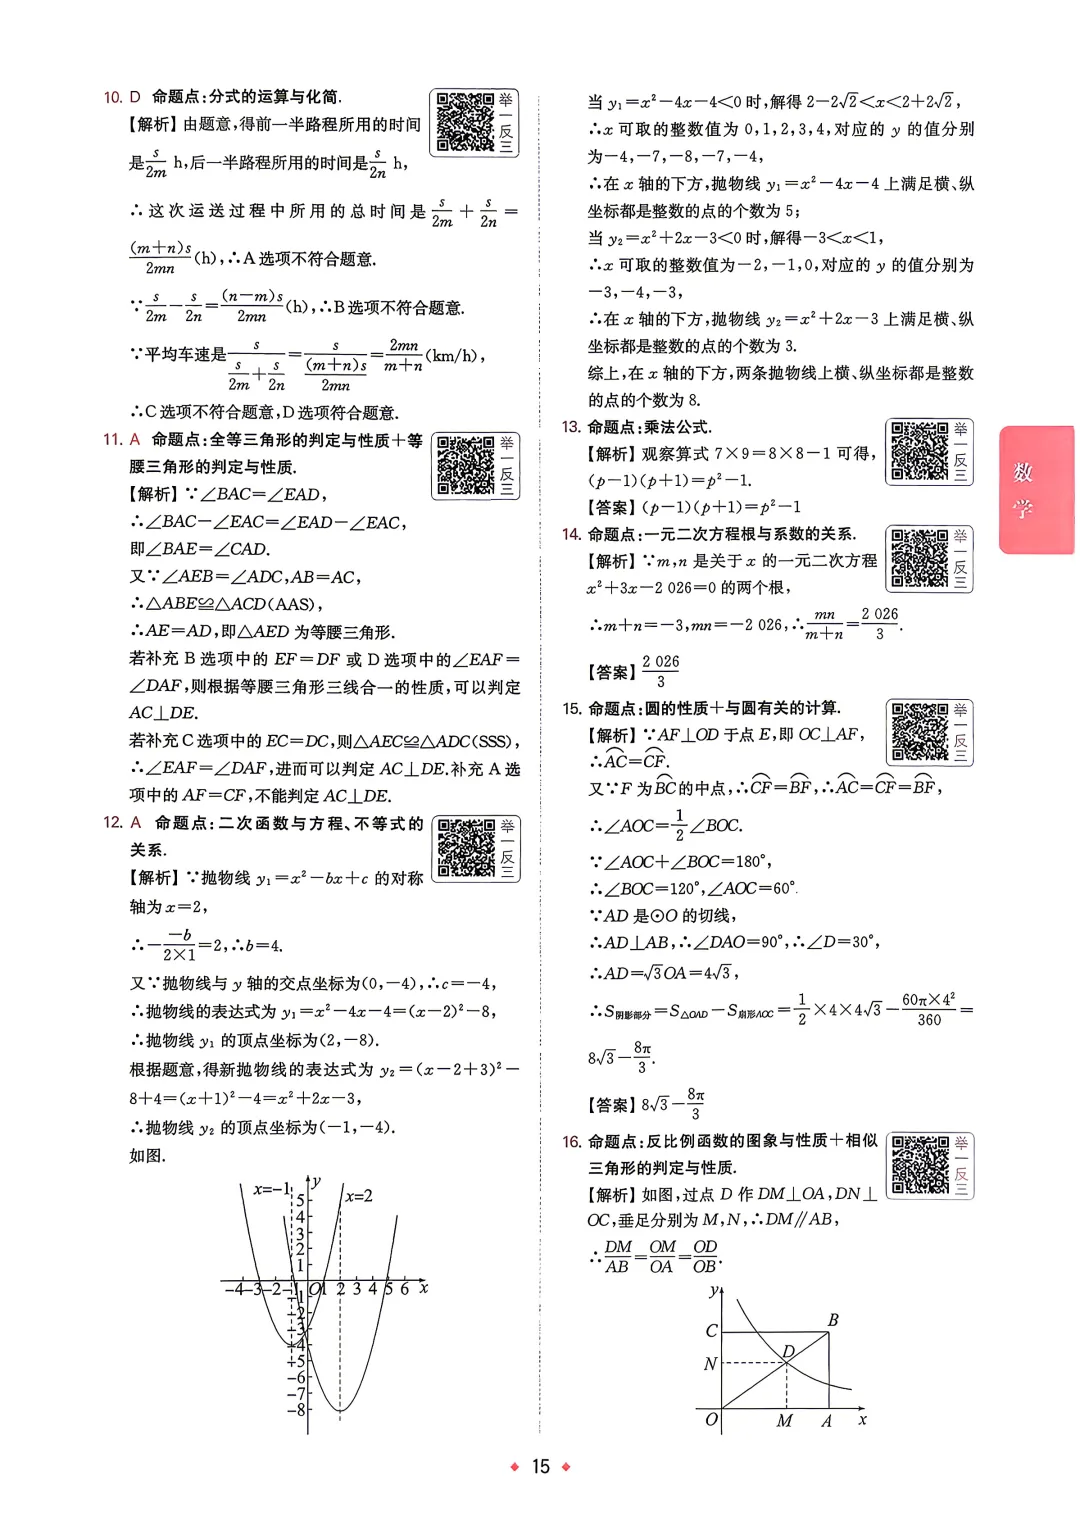 10. D 命题点:分式的运算与化简.
【解析】由题意,得前一半路程所用的时间
是s/2m h,后一半路程所用的时间是s/2n h,
∴这次运送过程中所用的总时间是s/2m+s/2n=
(m+n)s/2mn(h),∴A选项不符合题意.
∵s/2m-s/2n=(n-m)s/2mn(h),∴B选项不符合题意.
∵平均车速是s/(s/2m+s/2n)=s/((m+n)s/2mn)=2mn/(m+n)(km/h),
∴C选项不符合题意,D选项符合题意.
11. A 命题点:全等三角形的判定与性质+等
腰三角形的判定与性质.
【解析】∵∠BAC=∠EAD,
∴∠BAC-∠EAC=∠EAD-∠EAC,
即∠BAE=∠CAD.
又∵∠AEB=∠ADC,AB=AC,
∴△ABE≌△ACD(AAS),
∴AE=AD,即△AED为等腰三角形.
若补充B选项中的EF=DF或D选项中的∠EAF=
∠DAF,则根据等腰三角形三线合一的性质,可以判定
AC⊥DE.
若补充C选项中的EC=DC,则△AEC≌△ADC(SSS),
∴∠EAF=∠DAF,进而可以判定AC⊥DE.补充A选
项中的AF=CF,不能判定AC⊥DE.
12. A 命题点:二次函数与方程、不等式的
关系.
【解析】∵抛物线y₁=x²-bx+c的对称
轴为x=2,
∴-(-b)/(2×1)=2,∴b=4.
又∵抛物线与y轴的交点坐标为(0,-4),∴c=-4,
∴抛物线的表达式为y₁=x²-4x-4=(x-2)²-8,
∴抛物线y₁的顶点坐标为(2,-8).
根据题意,得新抛物线的表达式为y₂=(x-2+3)²-
8+4=(x+1)²-4=x²+2x-3,
∴抛物线y₂的顶点坐标为(-1,-4).
如图.
x=-1
y
x=2
5
4
3
2
1
-4 -3 -2 -1 O 1 2 3 4 5 6 x
-1
-2
-3
-4
-5
-6
-7
-8
当y₁=x²-4x-4<0时,解得2-2√2<x<2+2√2,
∴x可取的整数值为0,1,2,3,4,对应的y的值分别
为-4,-7,-8,-7,-4,
∴在x轴的下方,抛物线y₁=x²-4x-4上满足横、纵
坐标都是整数的点的个数为5;
当y₂=x²+2x-3<0时,解得-3<x<1,
∴x可取的整数值为-2,-1,0,对应的y的值分别为
-3,-4,-3,
∴在x轴的下方,抛物线y₂=x²+2x-3上满足横、纵
坐标都是整数的点的个数为3.
综上,在x轴的下方,两条抛物线上横、纵坐标都是整数
的点的个数为8.
13. 命题点:乘法公式.
【解析】观察算式7×9=8×8-1可得,
(p-1)(p+1)=p²-1.
【答案】(p-1)(p+1)=p²-1
14. 命题点:一元二次方程根与系数的关系.
【解析】∵m,n是关于x的一元二次方程
x²+3x-2 026=0的两个根,
∴m+n=-3,mn=-2 026,∴mn/(m+n)=2 026/3.
【答案】2 026/3
15. 命题点:圆的性质+与圆有关的计算.
【解析】∵AF⊥OD于点E,即OC⊥AF,
∴A͡C=C͡F.
又∵F为B͡C的中点,∴C͡F=B͡F,∴A͡C=C͡F=B͡F,
∴∠AOC=1/2∠BOC.
∵∠AOC+∠BOC=180°,
∴∠BOC=120°,∠AOC=60°.
∵AD是⊙O的切线,
∴AD⊥AB,∴∠DAO=90°,∴∠D=30°,
∴AD=√3OA=4√3,
∴S阴影部分=S△OAD-S扇形AOC=1/2×4×4√3-60π×4²/360=
8√3-8π/3.
【答案】8√3-8π/3
16. 命题点:反比例函数的图象与性质+相似
三角形的判定与性质.
【解析】如图,过点D作DM⊥OA,DN⊥
OC,垂足分别为M,N,∴DM∥AB,
∴DM/AB=OM/OA=OD/OB.
y
C B
N D
O M A x
举一反三
举一反三
举一反三
举一反三
举一反三
举一反三
举一反三
数学
15